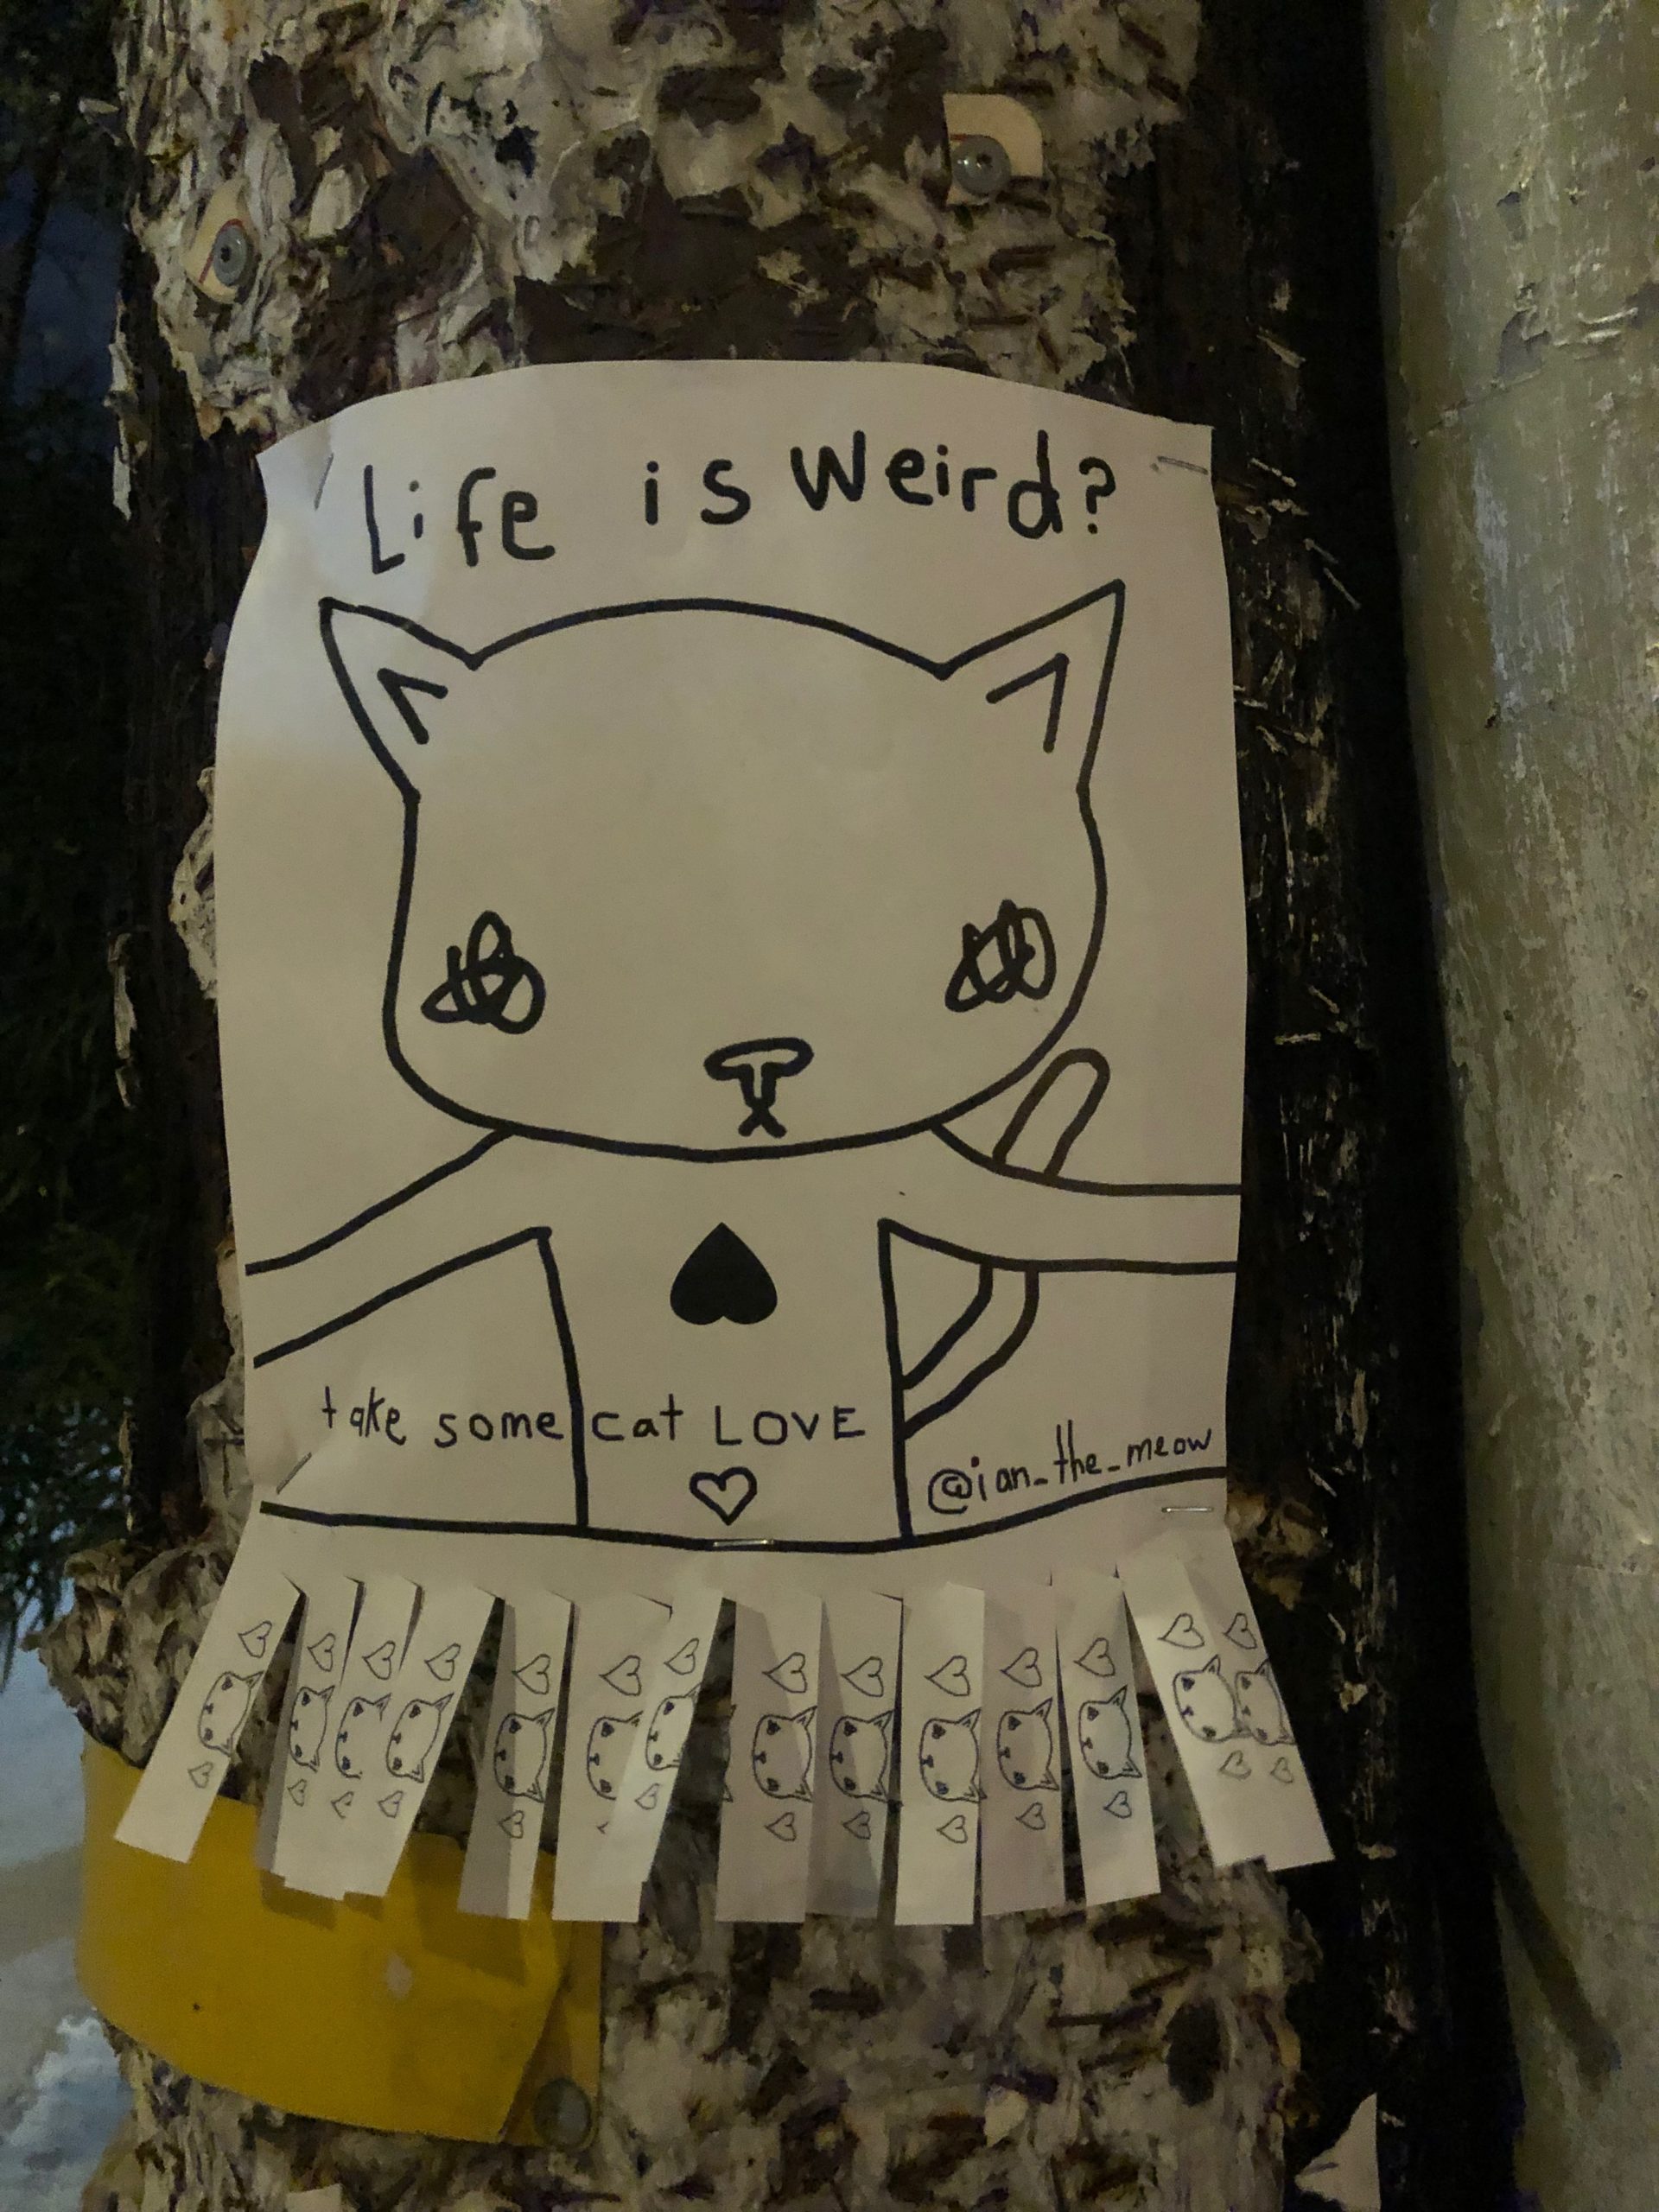 Life is Weird?
take some cat LOVE
@ian_the_meow